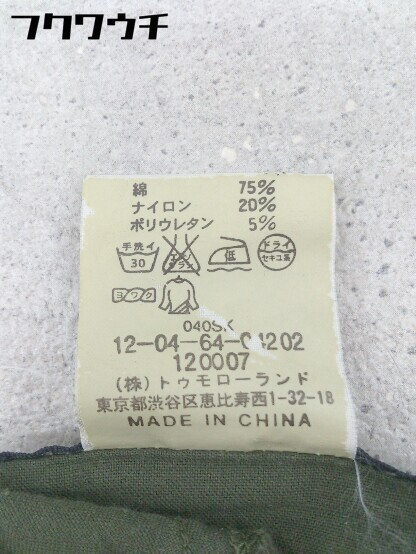 フクワウチ
綿 75%
ナイロン 20%
ポリウレタン 5%
手洗イ 30
低
ドライ セキユ系
ヨワク
040SK
12-04-64-04202
120007
(株)トゥモローランド
東京都渋谷区恵比寿西1-32-18
MADE IN CHINA